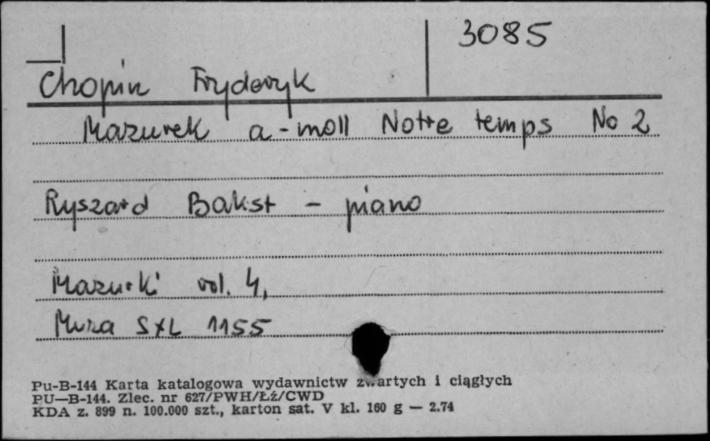 3085
Chopin Fryderyk
Mazurek a-moll Notre temps No 2
Ryszard Bakst - piano
Mazurki vol. 4,
Muza SXL 1155
Pu-B-144 Karta katalogowa wydawnictw zwartych i ciągłych
PU—B-144. Zlec. nr 627/PWH/Łź/CWD
KDA z. 899 n. 100.000 szt., karton sat. V kl. 160 g — 2.74